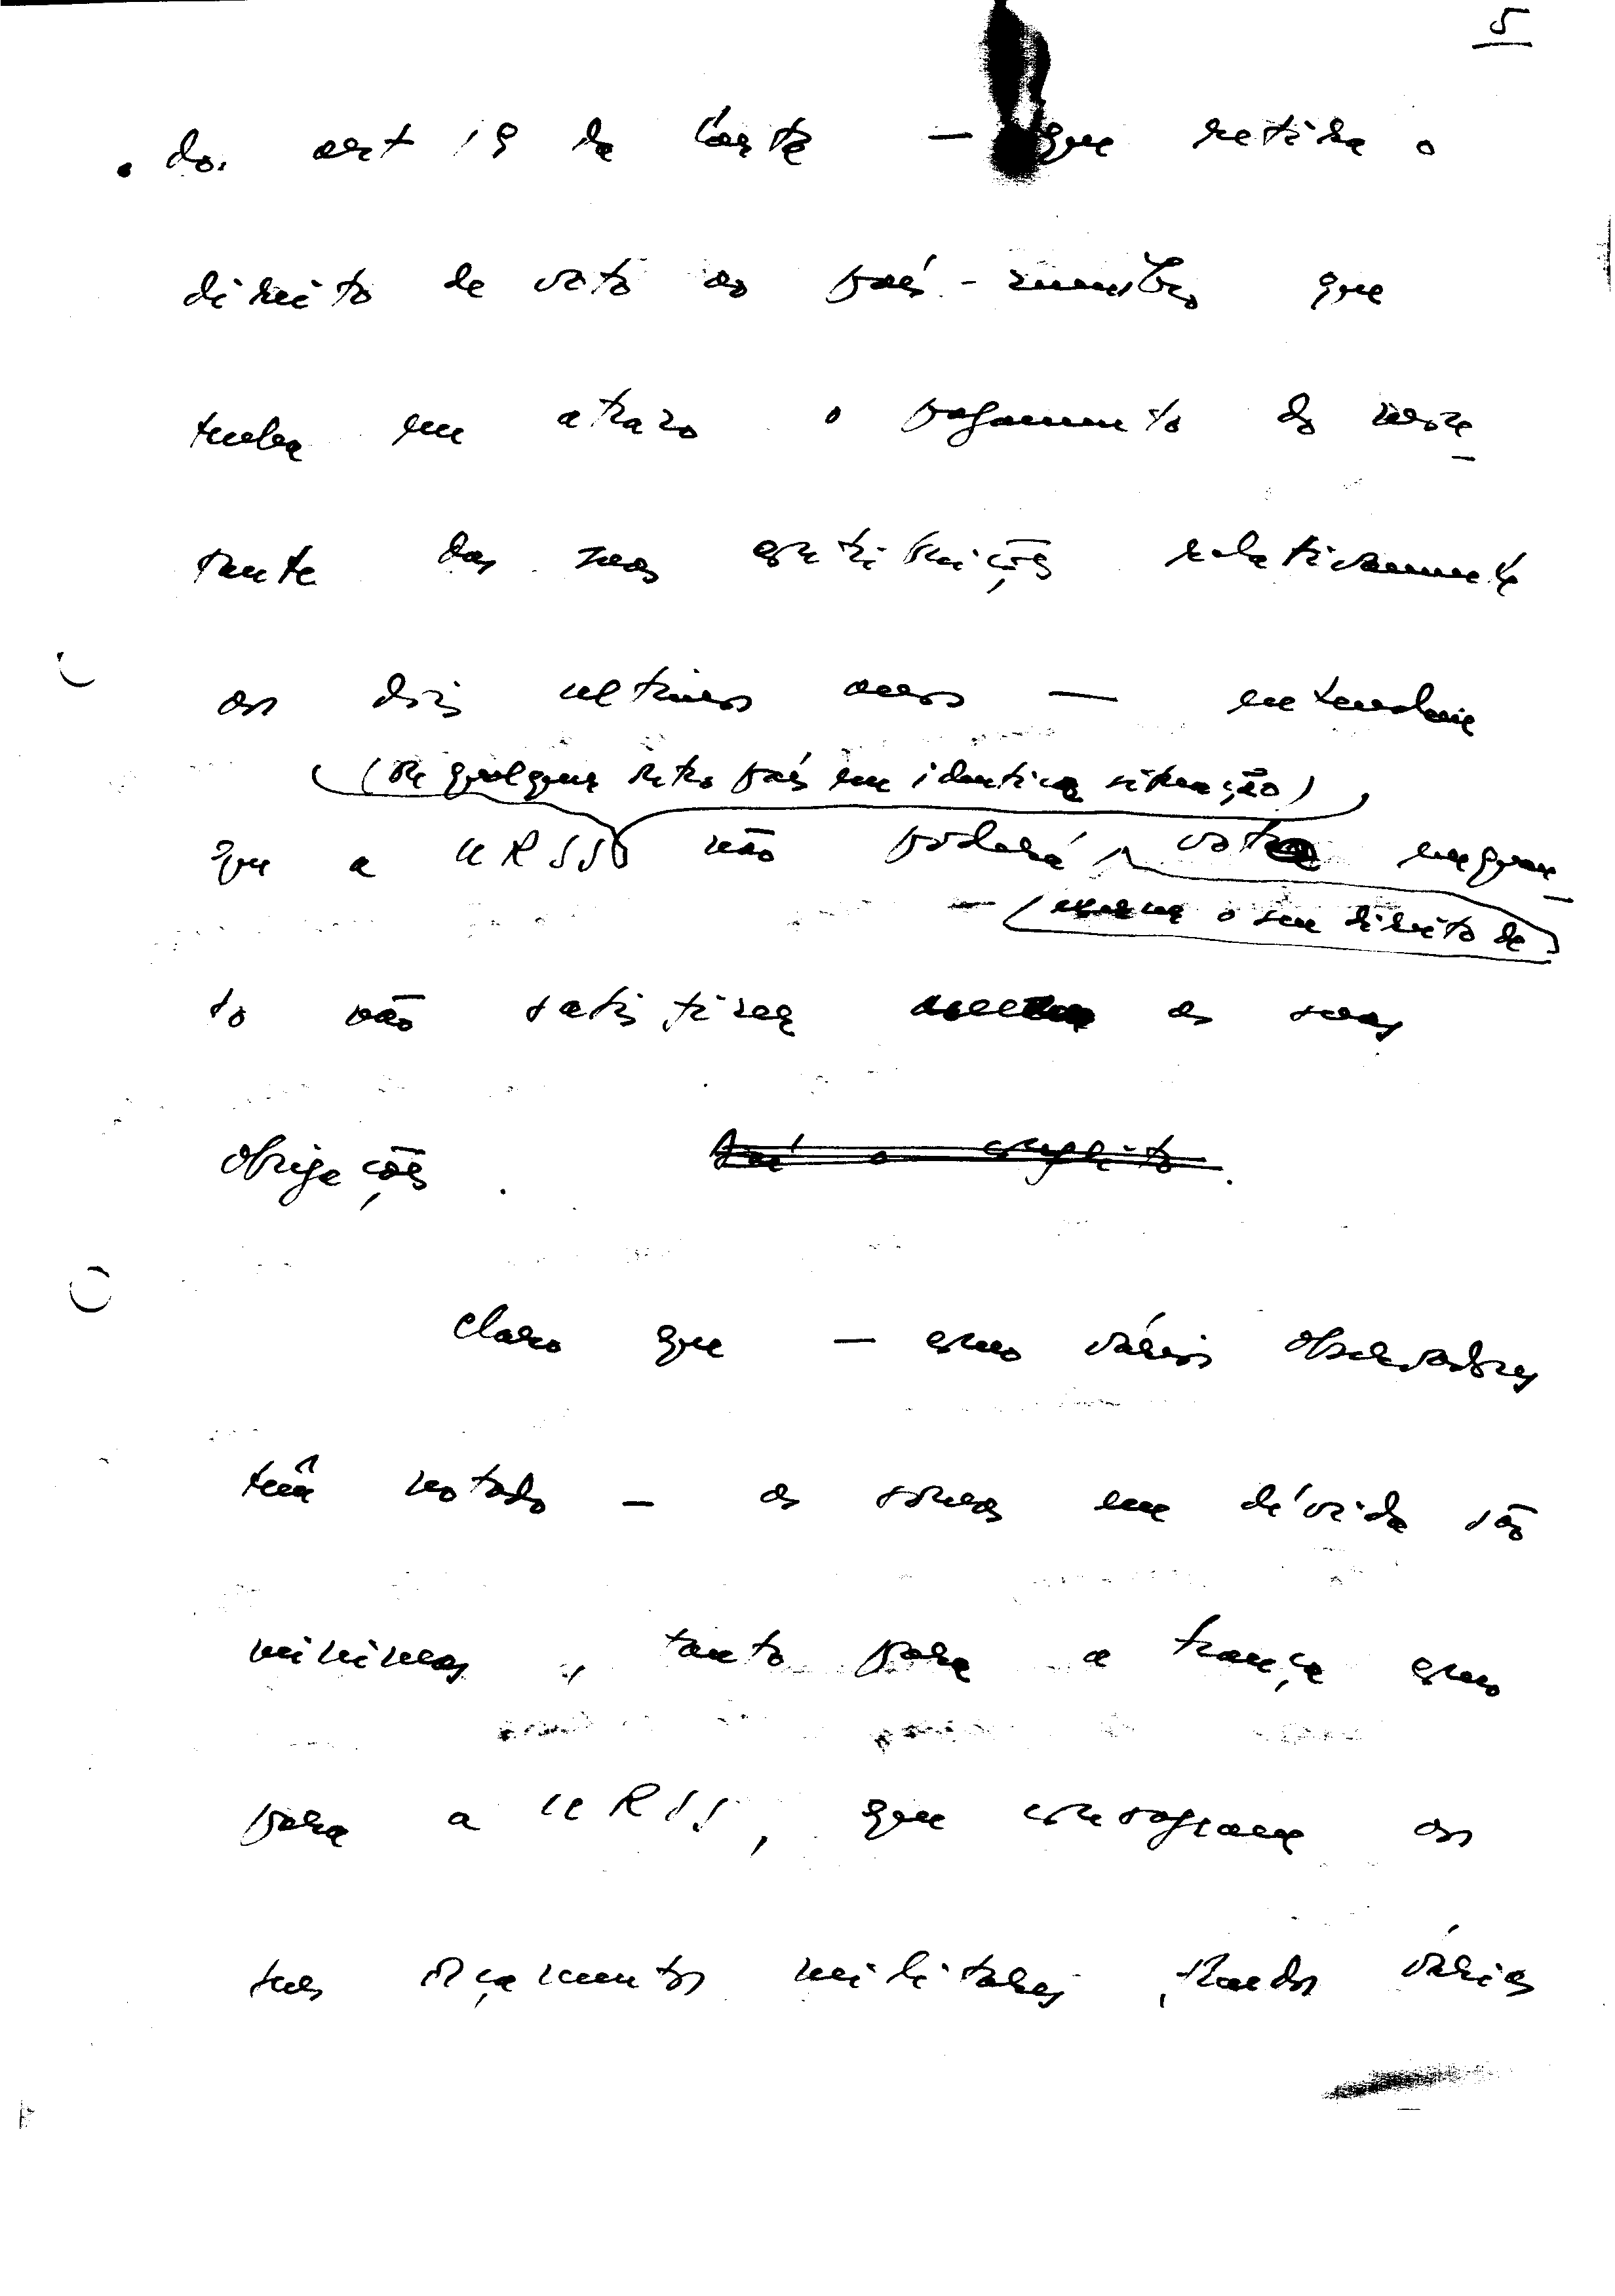 5
do art 19 da Carta — que retira o
direito de voto ao país-membro que
tenha em atrazo o pagamento do mon-
tante das suas contribuições relativamente
aos dois ultimos anos — entendem
(ou qualquer outro país em identica situação)
que a URSS não poderá votar enquan-
o seu direito de
to não satisfizer as suas
obrigações. Daí o conflito.
Claro que — como vários observadores
têm notado — as somas em dívida são
minimas, tanto para a França como
para a URSS, que consagram aos
seus orçamentos militares fundos vários